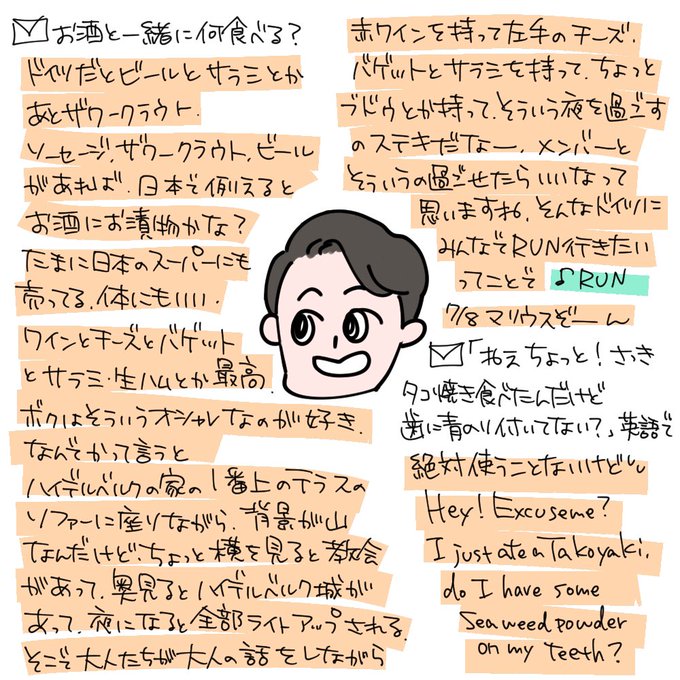 お酒と一緒に何食べる?
ドイツだとビールとサラミとか
あとザワークラウト.
ソーセージ,ザワークラウト,ビール
があれば.日本で例えると
お酒にお漬物かな?
たまに日本のスーパーにも
売ってる.体にもいい.
ワインとチーズとバゲット
とサラミ・生ハムとか最高.
ボクはそういうオシャレなのが好き.
なんでかって言うと
ハイデルベルクの家の1番上のテラスの
ソファーに座りながら.背景が山
なんだけど,ちょっと横を見ると教会
があって.奥見るとハイデルベルク城が
あって.夜になると全部ライトアップされる.
そこで大人たちが大人の話をしながら
赤ワインを持って左手のチーズ.
バゲットとサラミを持って.ちょっと
ブドウとか持って.そういう夜を過ごす
のステキだなー.メンバーと
そういうの過ごせたらいいなって
思いますね.そんなドイツに
みんなでRUN行きたい
ってことで ♪RUN
7/8 マリウスぞーん
「ねえちょっと!さっき
タコ焼き食べたんだけど
歯に青のり付いてない?」英語で
絶対使うことないけどし
Hey! Excuse me?
I just ate a Takoyaki.
do I have some
Sea weed powder
on my teeth?